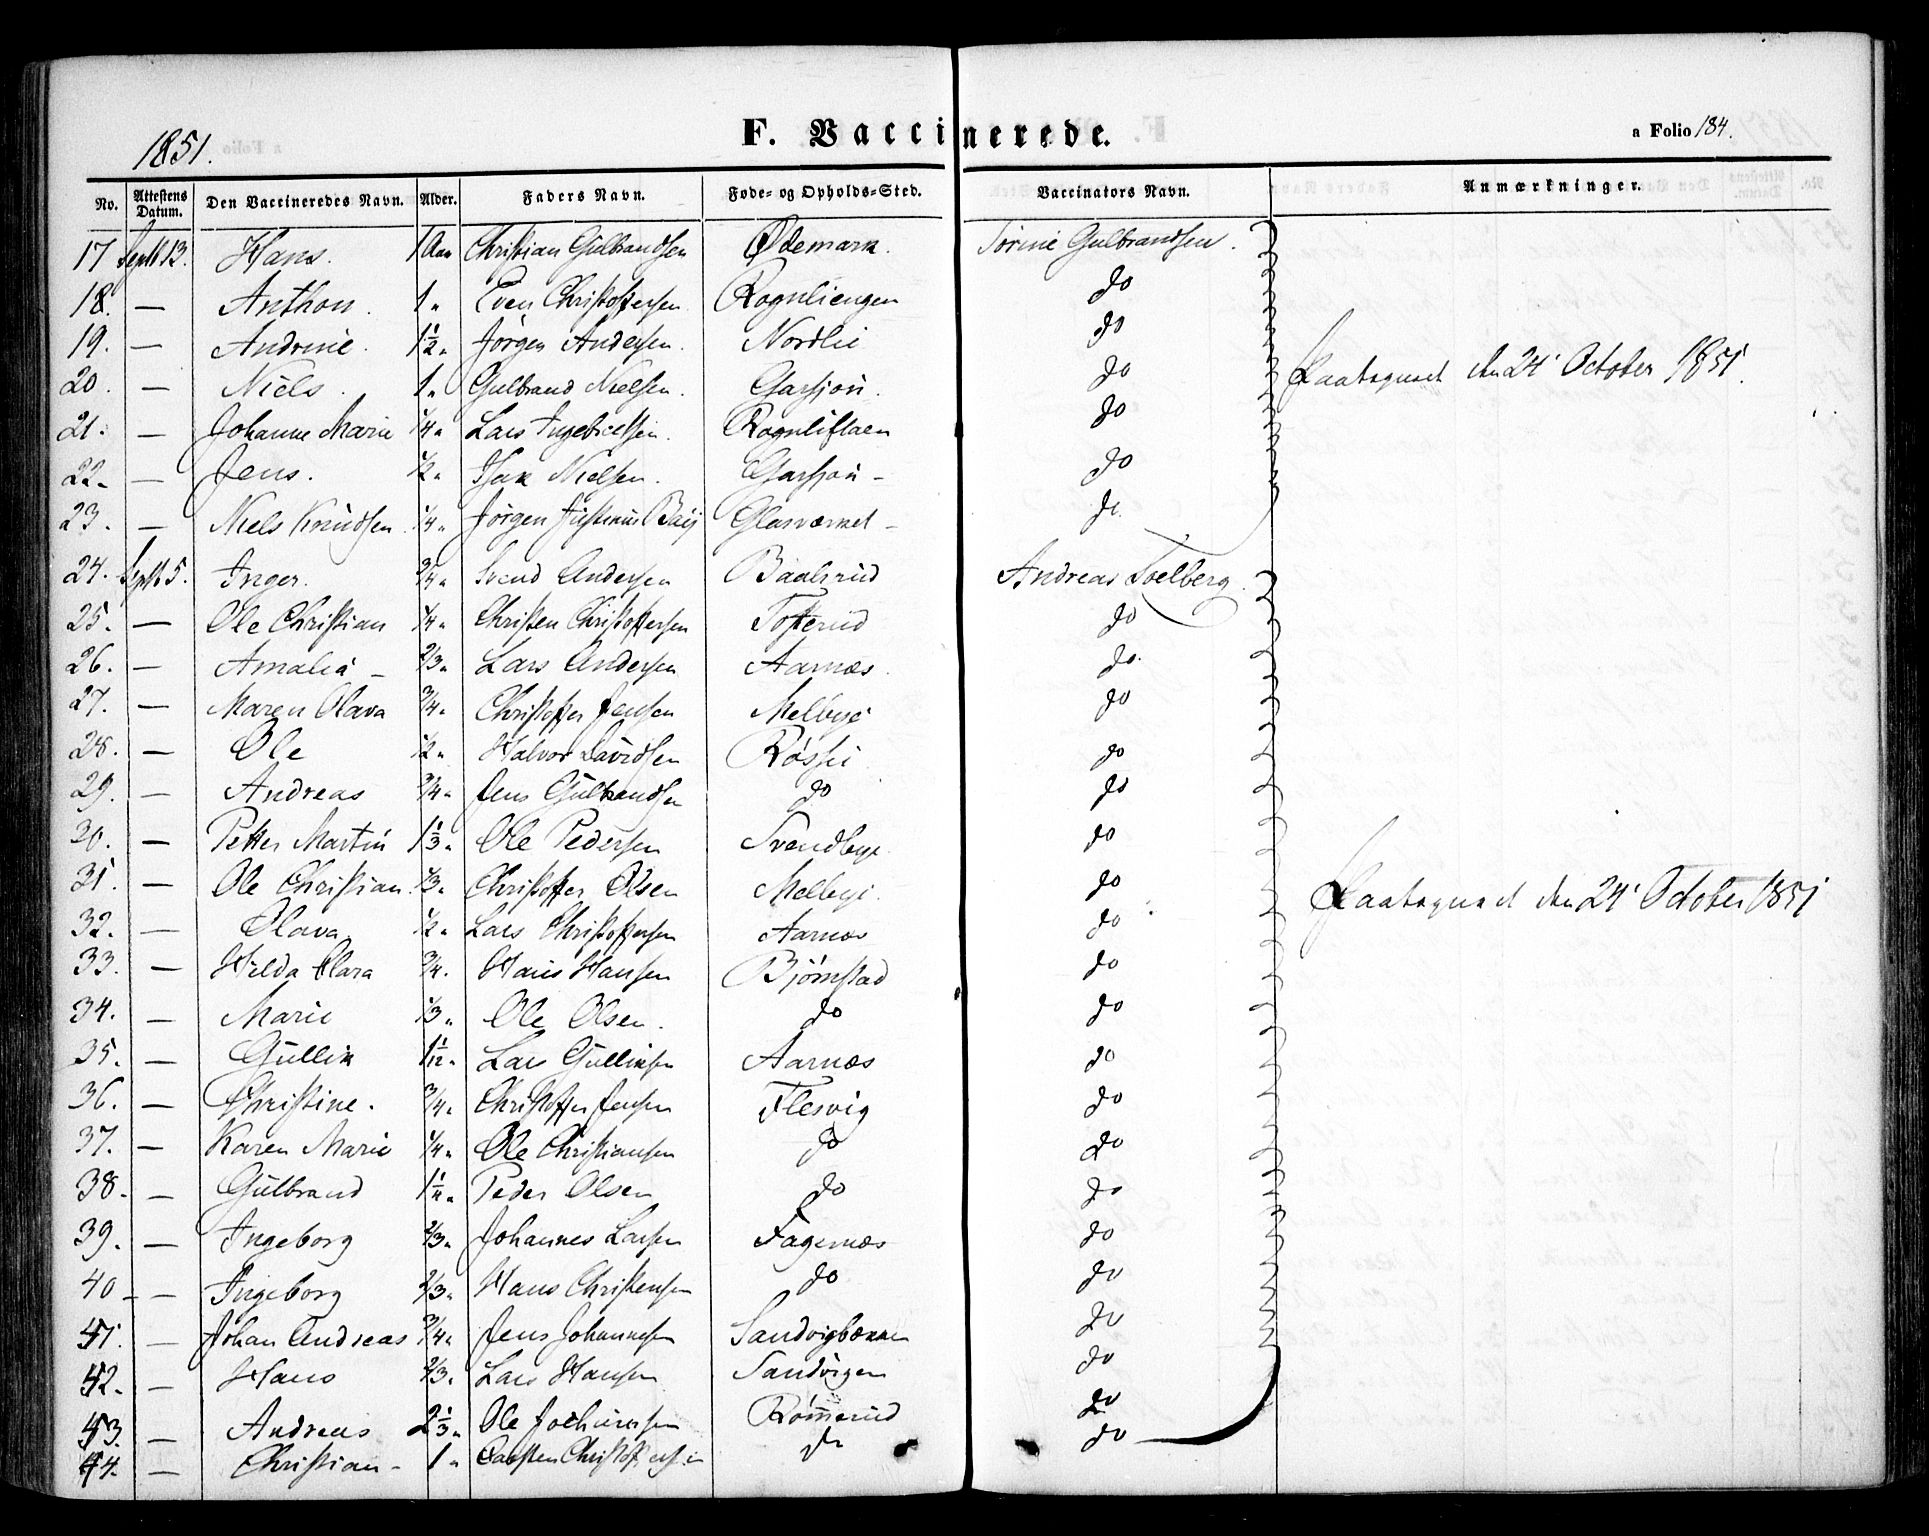 1851.
F. Vaccinerede.
a Folio 184.
No. Attestens Datum. Den Vaccineredes Navn. Alder. Faders Navn. Føde- og Opholds-Sted. Vaccinators Navn. Anmærkninger.
17 Septb 13. Hans. 1 Aar Christian Gulbrandsen Ødemark. Torine Gulbrandsen.
18. — Anthon. 1 " Even Christoffersen Rognliengen do
19. — Andrine. 1½ " Jörgen Andersen. Nordlie do
20. — Niels. 1 " Gulbrand Nielsen. Garsjøii. do den 24' October 1851.
21. — Johanne Marie 1/4 " Lars Ingebretsen. Rognliflaen do
22. — Jens. 1/2 " Isak Nielsen. Garsjøii - do
23. — Niels Knudsen 1/4 " Jörgen Justinus Glasværket - do
24. Septb 5. Inger. 3/4 " Svend Andersen Baalsrud Andreas Toelberg.
25. — Ole Christian 1/4 " Christen Christoffersen Tofterud do
26. — Amalia - 2/3 " Lars Andersen Aarnæs. do.
27. — Maren Olava 3/4 " Christoffer Jensen Melbye do
28. — Ole 1/2 " Halvor Davidsen do
29. — Andreas 3/4 " Jens Gulbrandsen do do
30. — Petter Martin 1 1/3 " Ole Pedersen Svendbye. do
31. — Ole Christian. 1/3 " Christoffer Olsen Melbye. do den 24' October 1851
32. — Olava. 1/2 " Lars Christoffersen Aarnæs do
33. — Hilda Clara 3/4 " Hans Hansen Bjørnstad do
34. — Marie 1/3 " Ole Olsen. do do
35. — Gullik 1 1/12 " Lars Gulliksen Aarnæs do
36. — Christine. 3/4 " Christoffer Jensen Flesvig do
37. — Karen Marie 1/4 " Ole Christiansen do do
38. — Gulbrand 1 1/4 " Peder Olsen do do
39. — Ingeborg 2/3 " Johannes Larsen Fagernæs do
40 - — Ingeborg 2/3 " Hans Christensen do do
41. — Johan Andreas 3/4 " Jens Johannesen Sandvigbakken do
42. — Hans 2/3 " Lars Hansen Sandvigen do
43. — Andreas 2 1/3 " Ole Jochumsen Rømmerud do
44. — Christian - 1 " Carsten Christoffersen do do